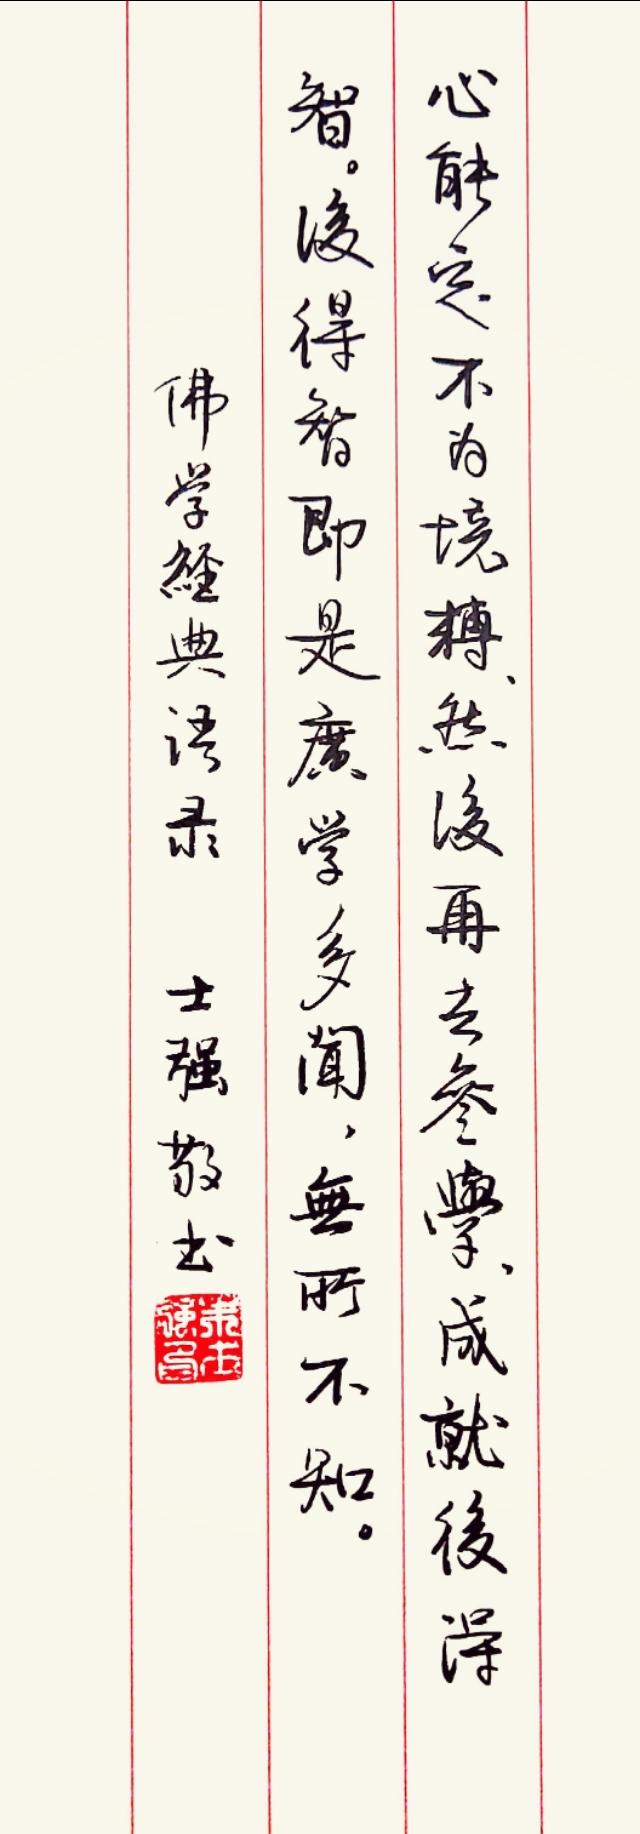 心能定不为境轉、然後再去参學、成就後得
智。後得智即是廣学多聞，無所不知。
佛学經典语录 士强敬书